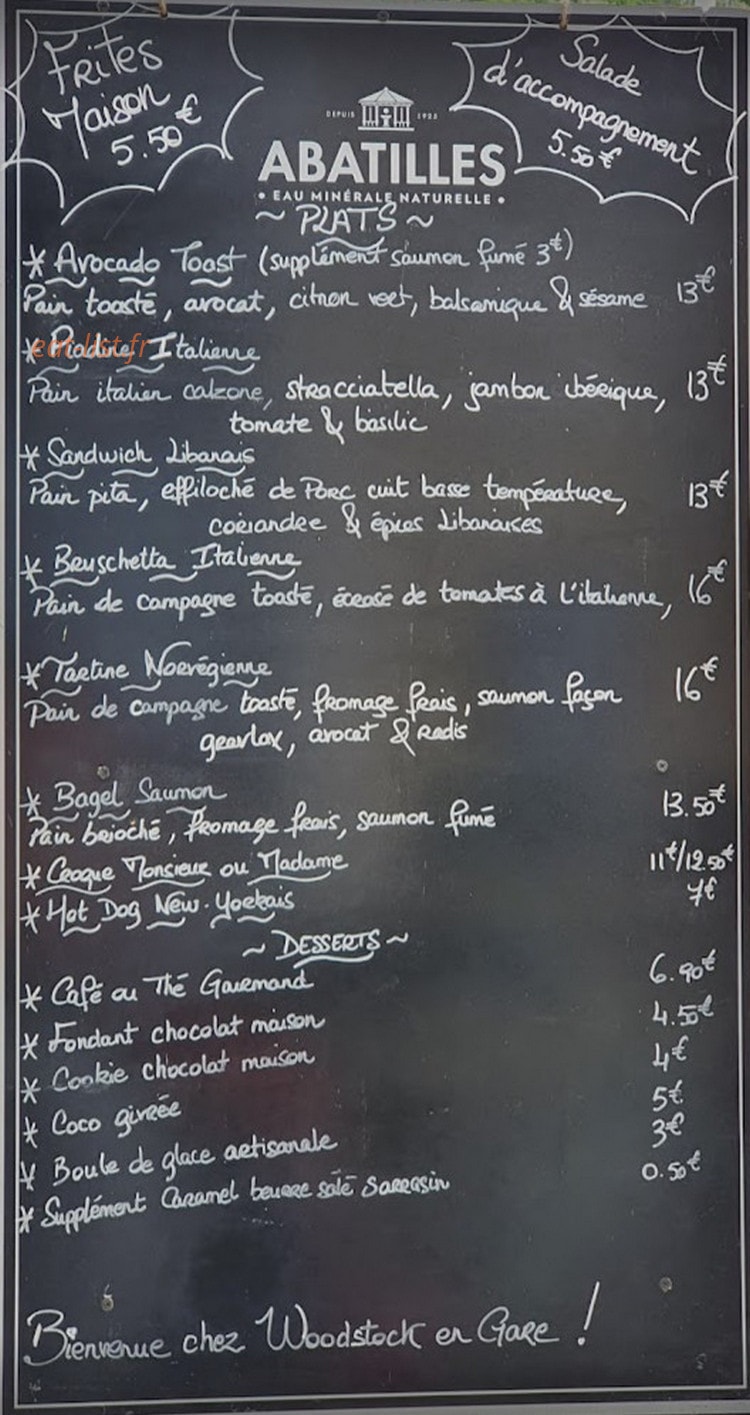 Frites
Maison
5.50€
Salade
d'accompagnement
5.50€
DEPUIS 1925
ABATILLES
• EAU MINÉRALE NATURELLE •
~ PLATS ~
* Avocado Toast (supplément saumon fumé 3€)
Pain toasté, avocat, citron vert, balsamique & sésame 13€
eat-list.fr
* Piadine Italienne
Pain italien calzone, stracciatella, jambon ibérique, 13€
tomate & basilic
* Sandwich Libanais
Pain pita, effiloché de Porc cuit basse température, 13€
coriandre & épices Libanaises
* Bruschetta Italienne
Pain de campagne toasté, écrasé de tomates à l'italienne, 16€
* Tartine Norvégienne 16€
Pain de campagne toasté, fromage frais, saumon façon
gravlax, avocat & Radis
* Bagel Saumon 13.50€
Pain brioché, fromage frais, saumon fumé
* Croque Monsieur ou Madame 11€/12.50€
* Hot Dog New-Yorkais 7€
~ DESSERTS ~
* Café ou Thé Gourmand 6.90€
* Fondant chocolat maison 4.50€
* Cookie chocolat maison 4€
* Coco givrée 5€
* Boule de glace artisanale 3€
* Supplément Caramel beurre salé Sarrasin 0.50€
Bienvenue chez Woodstock en Gare !